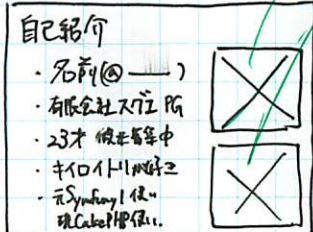 自己紹介
・名前(@ )
・有限会社スグエ PG
・23才 中
・キイロイトリが好き
・元Symfony1使い
現CakePHP使い.